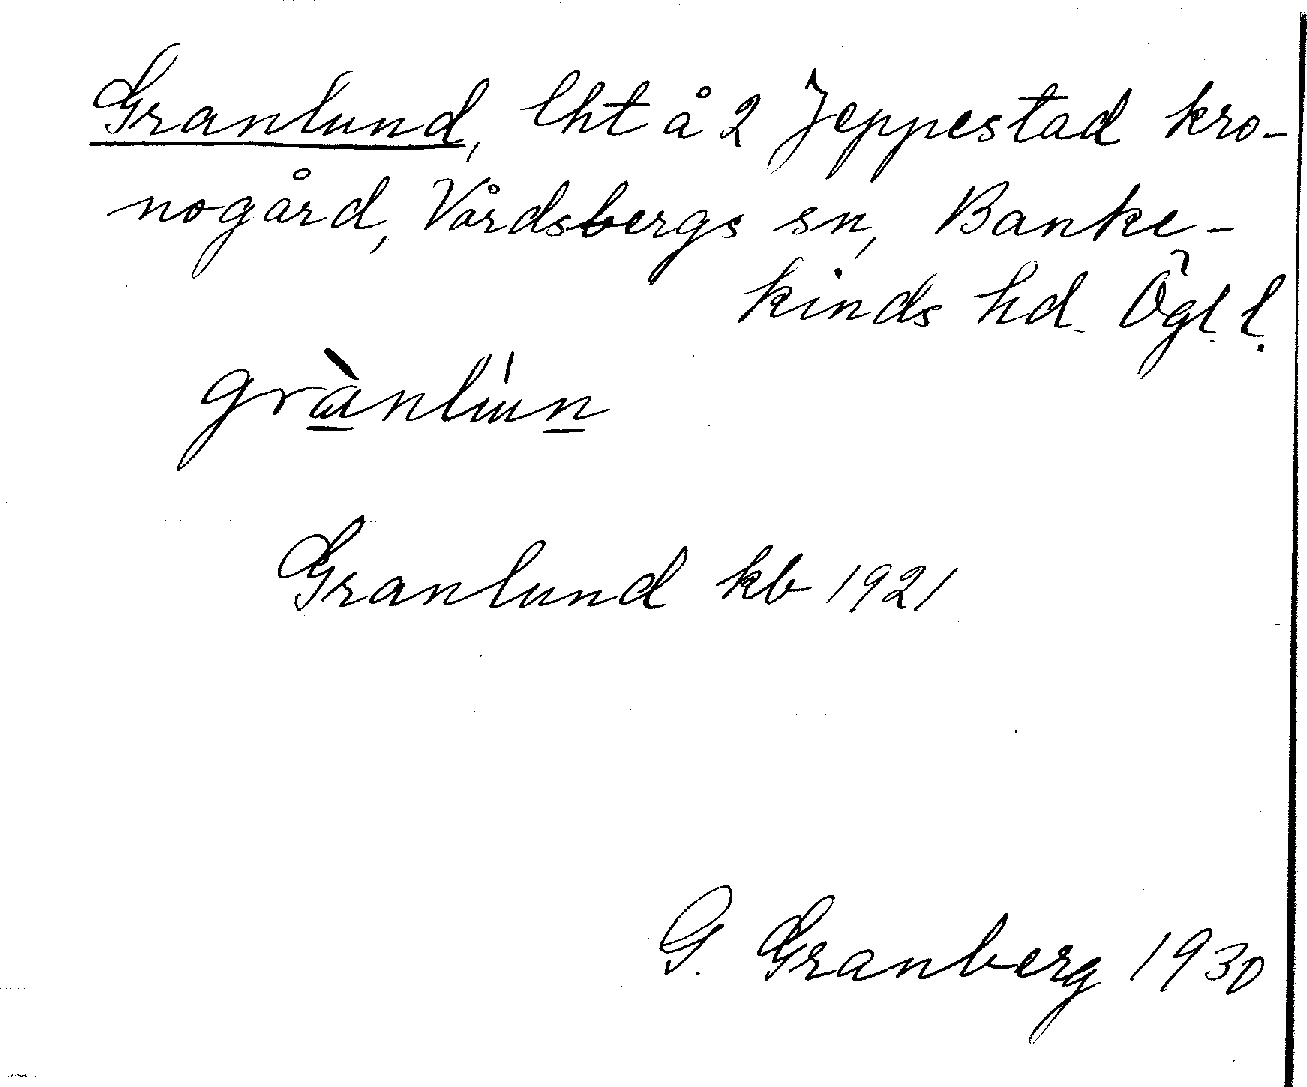 Granlund, lht å 2 Jeppestad kro-
nogård, Vårdsbergs sn, Banke-
kinds hd. Ögl l.
grànlún
Granlund kb 1921
G. Granberg 1930